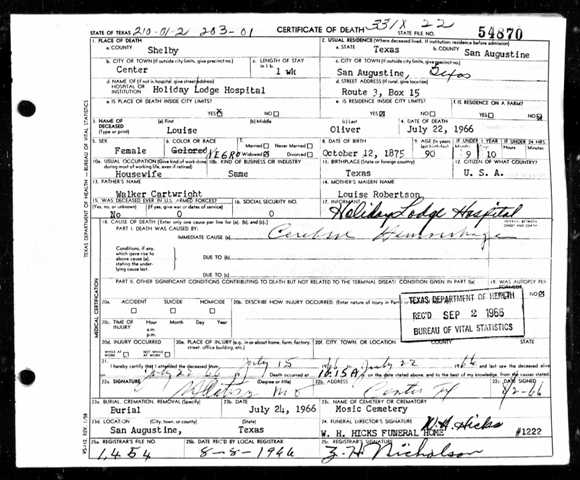 STATE OF TEXAS 210-01-2 203-01 CERTIFICATE OF DEATH 331X 22 STATE FILE NO. 54870
1. PLACE OF DEATH
a. COUNTY Shelby
2. USUAL RESIDENCE (Where deceased lived. If institution: residence before admission)
a. STATE Texas b. COUNTY San Augustine
b. CITY OR TOWN (If outside city limits, give precinct no.) Center
c. LENGTH OF STAY in 1 b. 1 wk
c. CITY OR TOWN (If outside city limits, give precinct no.) San Augustine, Texas
d. NAME OF HOSPITAL OR INSTITUTION (If not in hospital, give street address) Holiday Lodge Hospital
d. STREET ADDRESS (If rural, give location) Route 3, Box 15
e. IS PLACE OF DEATH INSIDE CITY LIMITS? YES NO
e. IS RESIDENCE INSIDE CITY LIMITS? YES NO
f. IS RESIDENCE ON A FARM? YES NO
3. NAME OF DECEASED (Type or print) (a) First Louise (b) Middle (c) Last Oliver
4. DATE OF DEATH July 22, 1966
5. SEX Female
6. COLOR OR RACE Colored NEGRO
7. Married Never Married Widowed Divorced
8. DATE OF BIRTH October 12, 1875
9. AGE (In years last birthday) 90 IF UNDER 1 YEAR 9 10 IF UNDER 24 HRS.
10a. USUAL OCCUPATION (Give kind of work done during most of working life, even if retired) Housewife
10b. KIND OF BUSINESS OR INDUSTRY Same
11. BIRTHPLACE (State or foreign country) Texas
12. CITIZEN OF WHAT COUNTRY? U. S. A.
13. FATHER'S NAME Walker Cartwright
14. MOTHER'S MAIDEN NAME Louise Robertson
15. WAS DECEASED EVER IN U.S. ARMED FORCES? (Yes, no, or unknown) (If yes, give war or dates of service) No 0
16. SOCIAL SECURITY NO. 0
17. INFORMANT Holiday Lodge Hospital
18. CAUSE OF DEATH [Enter only one cause per line for (a), (b), and (c).] INTERVAL BETWEEN ONSET AND DEATH
PART I. DEATH WAS CAUSED BY:
IMMEDIATE CAUSE (a) Hemorrhage
Conditions, if any, which gave rise to above cause (a), stating the underlying cause last. DUE TO (b)
DUE TO (c)
PART II. OTHER SIGNIFICANT CONDITIONS CONTRIBUTING TO DEATH BUT NOT RELATED TO THE TERMINAL DISEASE CONDITION GIVEN IN PART I(a)
19. WAS AUTOPSY PERFORMED? YES NO
20a. ACCIDENT SUICIDE HOMICIDE
20b. DESCRIBE HOW INJURY OCCURRED. (Enter nature of injury in Part I
TEXAS DEPARTMENT OF HEALTH
REC'D SEP 2 1966
BUREAU OF VITAL STATISTICS
20c. TIME OF INJURY Hour Month Day Year a.m. p.m.
20d. INJURY OCCURRED WHILE AT WORK NOT WHILE AT WORK
20e. PLACE OF INJURY (e.g. in or about home, farm, factory, street, office building, etc.)
20f. CITY, TOWN, OR LOCATION COUNTY STATE
21. I hereby certify that I attended the deceased from July 15 July 22 66
July 22 Death occurred at 10:15A m. on the date stated above, and to the best of my knowledge, from the causes stated.
22a. SIGNATURE MD (Degree or title)
22b. ADDRESS Center
22c. DATE SIGNED
23a. BURIAL, CREMATION, REMOVAL (Specify) Burial
23b. DATE July 24, 1966
23c. NAME OF CEMETERY OR CREMATORY Mosic Cemetery
23d. LOCATION (City, town, or county) (State) San Augustine, Texas
24. FUNERAL DIRECTOR'S SIGNATURE W. H. Hicks
W. H. HICKS FUNERAL HOME #1222
25a. REGISTRAR'S FILE NO. 1454
25b. DATE REC'D BY LOCAL REGISTRAR 8-8-1966
25c. REGISTRAR'S SIGNATURE Z. H. Nicholson
TEXAS DEPARTMENT OF HEALTH — BUREAU OF VITAL STATISTICS
MEDICAL CERTIFICATION
VS-112 REV. 1/58